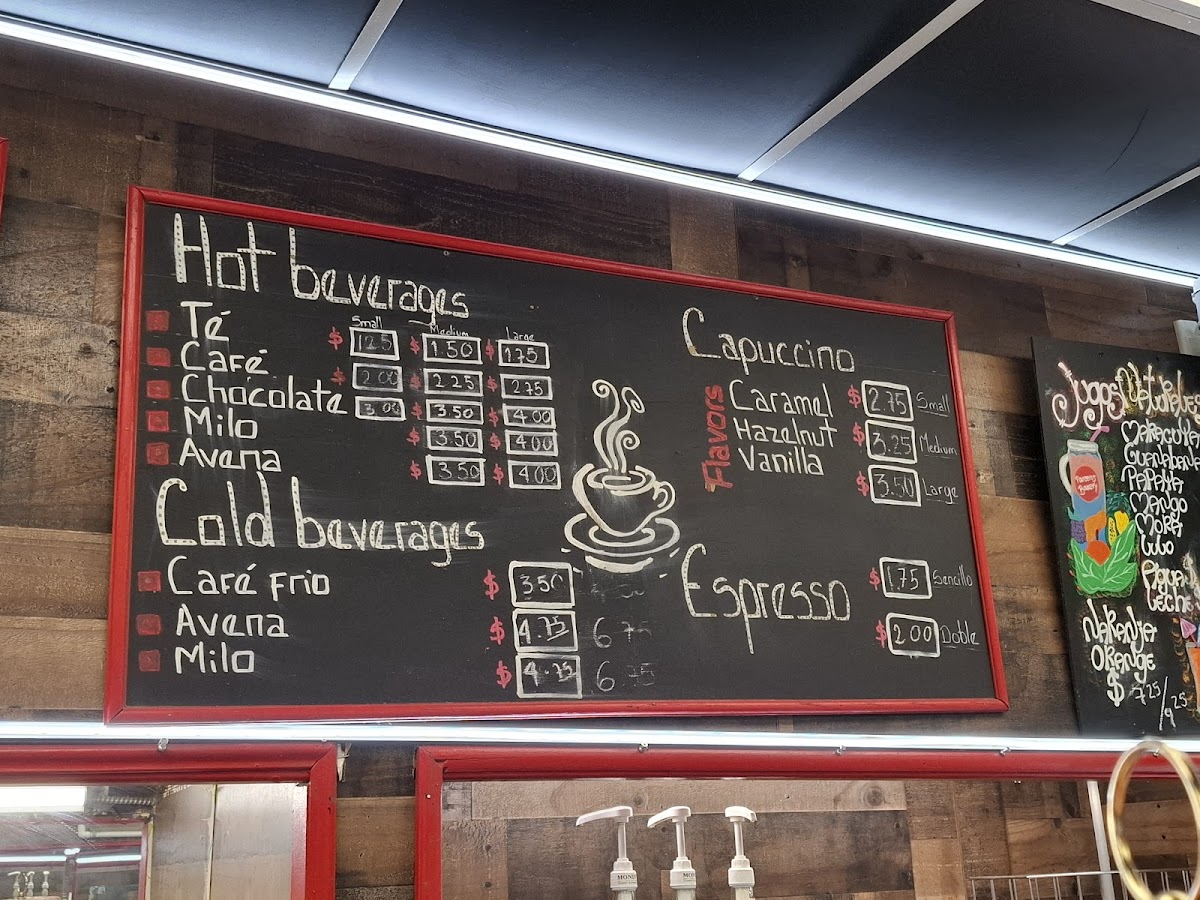 Hot beverages
Small Medium Large
Té $ 1.25 $ 1.50 $ 1.75
Café $ 2.00 $ 2.25 $ 2.75
Chocolate 3.00 $ 3.50 $ 4.00
Milo $ 3.50 $ 4.00
Avena $ 3.50 $ 4.00
Cold beverages
Café frio $ 3.50
Avena $ 4.75 6.75
Milo $ 4.75 6.75
Capuccino
Flavors
Caramel $ 2.75 Small
Hazelnut $ 3.25 Medium
Vanilla $ 3.50 Large
Espresso
$ 1.75 Sencillo
$ 2.00 Doble
Jugos Naturales
Maracuya
Guanabana
Papaya
Mango
Mora
Lulo
Agua
Leche
Naranja
Orange
$ 7.25/9.25